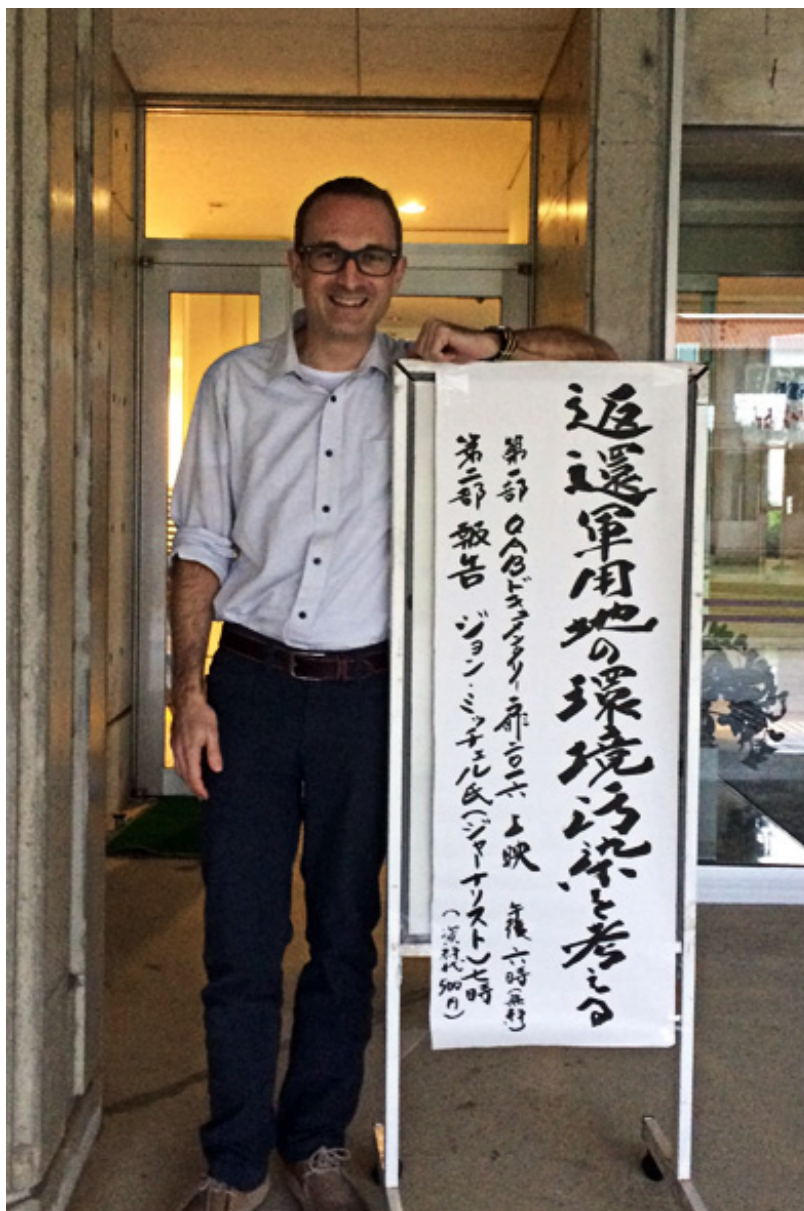 返還軍用地の環境汚染を考える
第一部 QABドキュメンタリー 二〇一六 上映 午後六時(無料)
第二部 報告 ジョン・ミッチェル氏(ジャーナリスト)七時
(資料代500円)